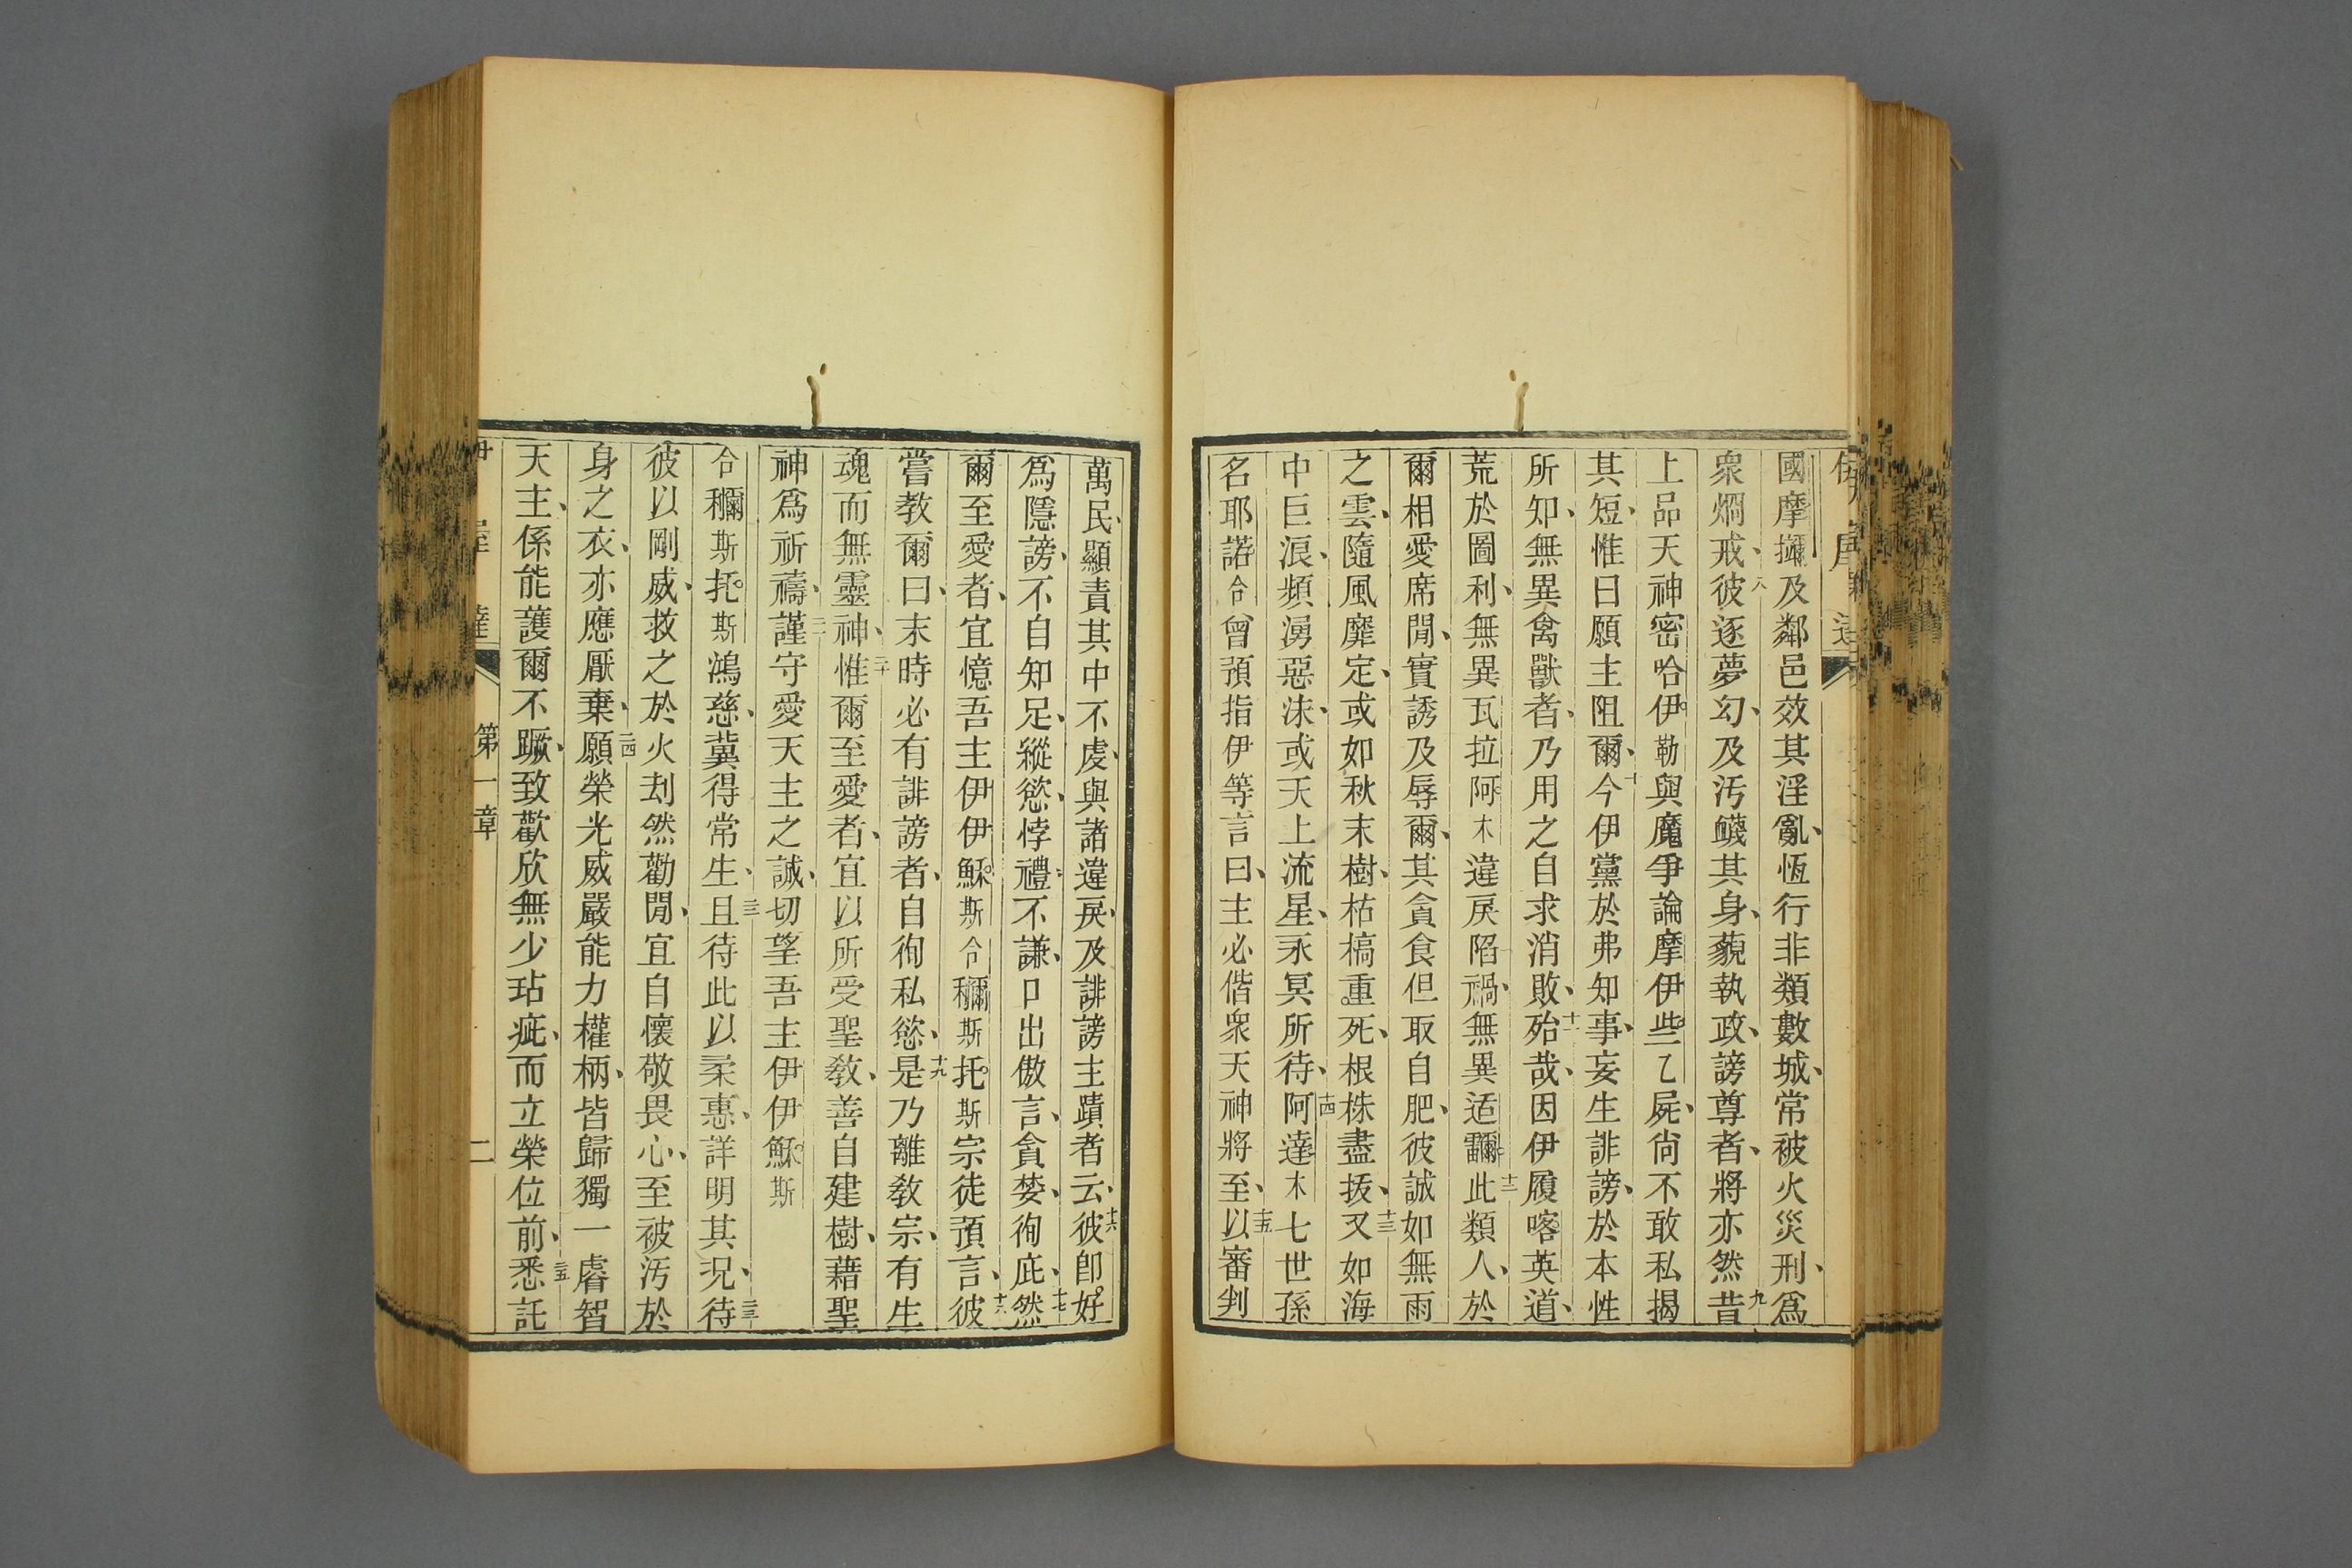 國摩㺯及鄰邑效其淫亂、恆行非類數城、常被火災刑、爲
衆烱戒、八彼逐夢幻、及汚衊其身、藐執政、謗尊者、將亦然九昔
上品天神密哈伊勒與魔爭論摩伊些乙屍、尙不敢私揭
其短、惟曰願主阻爾、十今伊黨於弗知事、妄生誹謗、於本性
所知、無異禽獸者、乃用之自求消敗、十一殆哉、因伊履喀英道、
荒於圖利、無異瓦拉阿木違戾陷禍、無異适𩆜十二此類人、於
爾相愛席間、實誘及辱爾、其貪食但取自肥、彼誠如無雨
之雲、隨風靡定、或如秋末樹、枯槁重死、根株盡拔、十三又如海
中巨浪、頻湧惡沫、或天上流星、永冥所待、十四阿達木七世孫
名耶諾合曾預指伊等言曰、主必偕衆天神將至、十五以審判
萬民、顯責其中不虔、與諸違戾、及誹謗主蹟者云、十六彼卽好
爲隱謗、不自知足、縱慾、悖禮、不謙、口出傲言、貪婪、徇庇、十七然
爾至愛者、宜憶吾主伊伊穌斯合穪斯托斯宗徒預言、十八彼
嘗教爾曰、末時必有誹謗者、自徇私慾、十九是乃離敎宗、有生
魂而無靈神、二十惟爾至愛者、宜以所受聖敎、善自建樹、藉聖
神爲祈禱、二一謹守愛天主之誠、切望吾主伊伊穌斯
合穪斯托斯鴻慈、冀得常生、二二且待此以柔惠、詳明其況、二三待
彼以剛威、救之於火刦然勸閒、宜自懷敬畏心、至被汚於
身之衣、亦應厭棄、二四願榮光威嚴能力權柄、皆歸獨一睿智
天主、係能護爾不蹶、致歡欣無少玷疵、而立榮位前、二五悉託
伊屋達 第一章 二